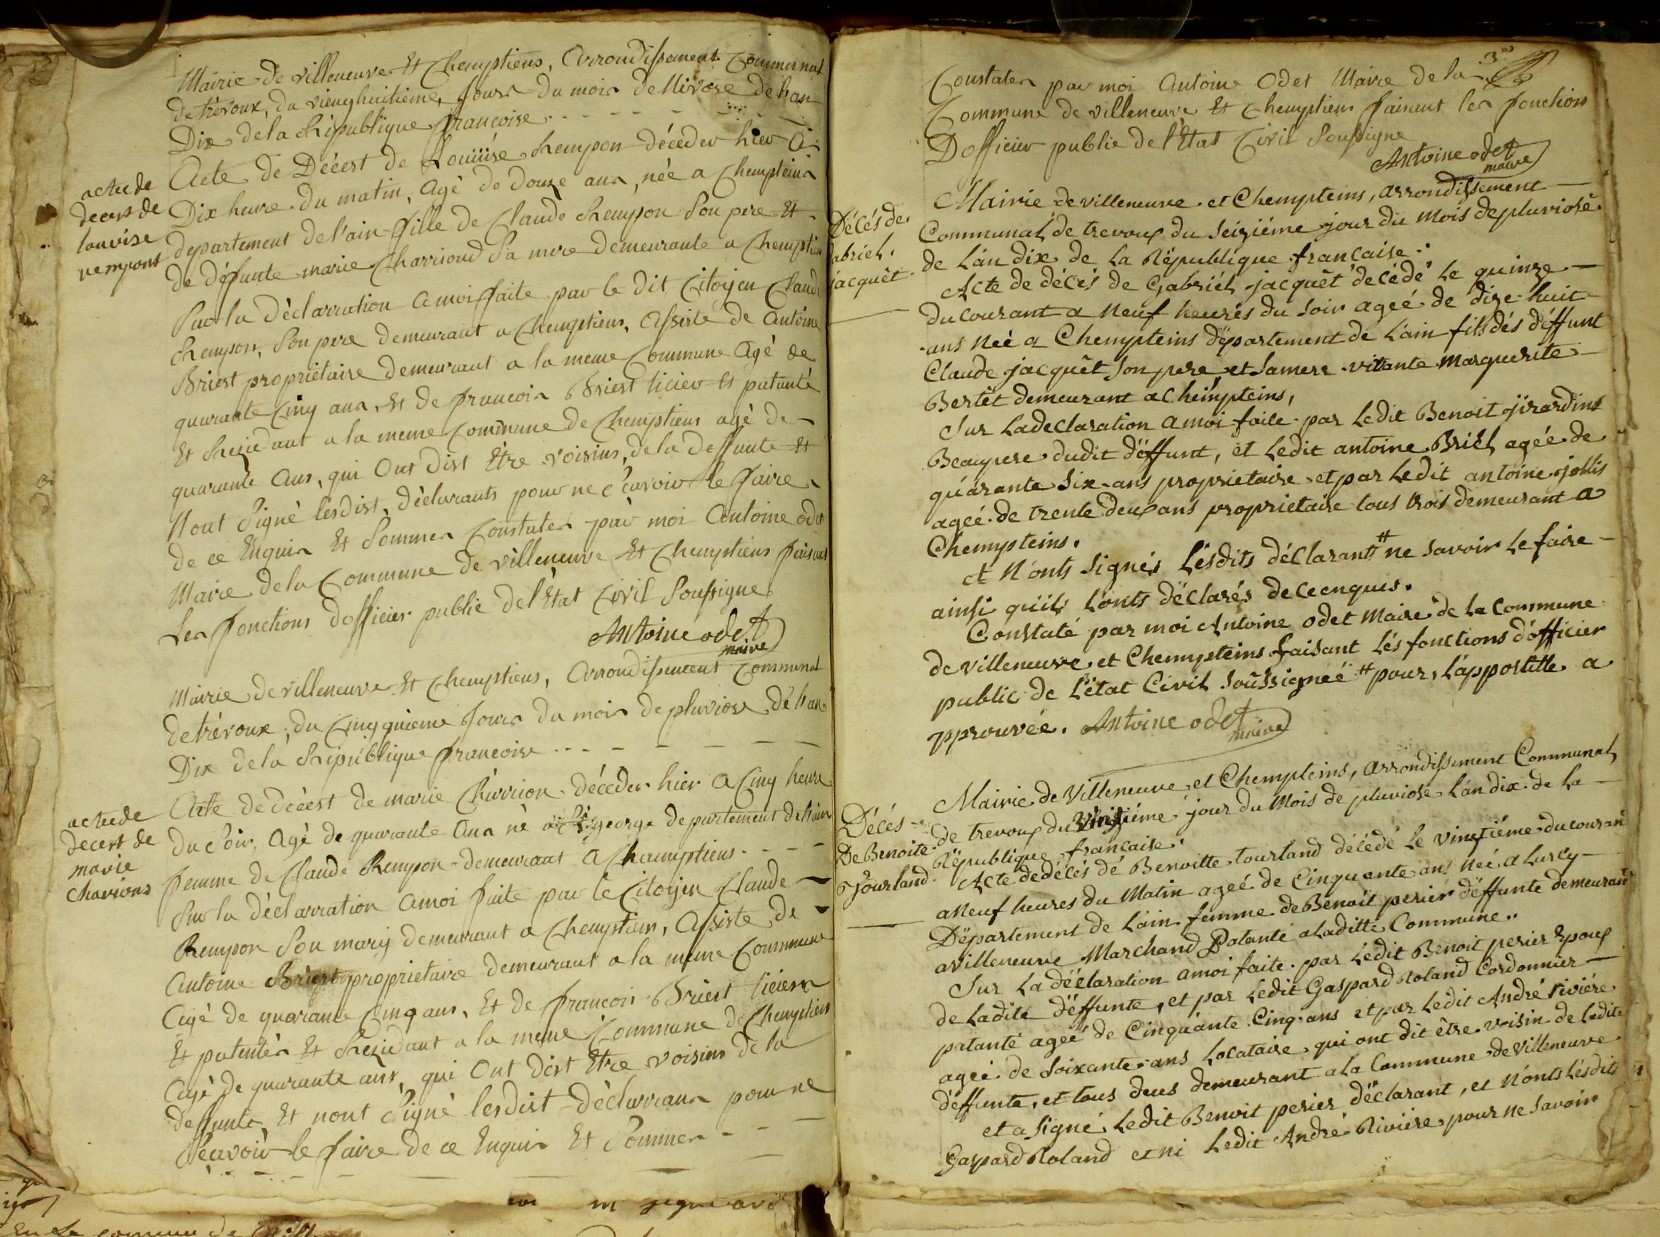 Mairie de villeneuve Et Chemptiens, Arrondissement Communal
de trévoux, du vienghuitieme, Jours du mois de Nivose de l'an
Dix de la République francoise
Acte de Décest de Louiiise Rempon décéder hier a
Dix heure du matin, Agé de douze ans, née a Chempteins
departement de l'ain fille de Claude Rempon Son pere Et
de défunte marie Charriond Sa mere demeurante a Chemptien
Sur la déclarration a moi faite par le dit Citoyen Claude
Rempon, Son pere demeurant a Chemptiens, assisté de antoine
Briest propriétaire demeurant a la meme Commune agé de
quarante Cinq ans, Et de francois Briest ticier Et patanté
Et Rezidant a la meme Commune de Chemptiens agé de
quarante ans, qui Ont dist Etre voisins, de la deffunte Et
Nont Signé lesdist, déclarants pour ne Scavoir le faire
de ce Enquis Et Sommer Constater par moi Antoine odet
Maire de la Commune de villeneuve Et Chemptiens faisant
Les fonctions dofficier public de l'Etat Civil Soussigne
Antoine odet
maire
actede
decest de
louvise
rempons
Mairie de villeneuve Et Chemptiens, Arrondissement Communal
de trévoux, du Cinqquieme Jours du mois de pluviose de l'an
Dix de la République francoise
Acte de décest de marie Chirrion décéder hier a Cinq heure
du Soir, Agé de quarante Ans né a St george departement de l'ain
femme de Claude Rempon demeurant a Chemptiens
Sur la déclarration a moi faite par le Citoyen Claude
Rempon Son mary demeurant a Chemptiens, Assisté de
Antoine Briest propriétaire demeurant a la meme Commune
Agé de quarante Cinq ans, Et de francois Briest ticiers
Et patantés Et Rezidant a la meme Commune de Chemptiens
Agé de quarante ans, qui Ont dist Etre voisins de la
deffunte Et nont Signé lesdist déclarrans pour ne
Scavoir le faire de ce Enquis Et Sommer
actede
decest de
marie
charions
3
Constater par moi Antoine Odet Maire de la
Commune de villeneuve Et Chemptiens faisant les fonctions
Dofficier public de l'Etat Civil Soussigne
Antoine odet
maire
Mairie de villeneuve et Chempteins, arrondissement
Communal de trevoux du Seiziéme jour du Mois de pluviose
de L'an dix de la République française.
Acte de décés de Gabriél jacquêt décédé le quinze
du courant a Neuf heurés du Soir ageé de dixe huit
ans Neé a Chempteins département de L'ain fils dés déffunt
Claude jacquêt Son pere et Samere vivante Marguerite
Bertêt demeurant a Chempteins,
Sur Ladeclaration a moi faite par Ledit Benoit Girardins
Beaupere dudit déffunt, et Ledit antoine Briél ageé de
quarante Six ans proprietaire et par Ledit antoine jollis
ageé de trente deux ans proprietaire tous trois demeurant a
Chempteins.
et N'onts Signés Lésdits déclarant # ne Savoir Le faire
ainsi qu'ils Lonts déclarés de ceenquis.
Constaté par moi Antoine odet Maire de La Commune
de villeneuve et Chempteins faisant Lés fonctions d'officier
public de L'état Civil Soussigneé # pour L'appostille a
pprouvée. Antoine odet
maire
Décés de
abriél
jacquêt
Mairie de Villeneuve et Chempteins, arrondissement Communal
de trevoux du vintiéme jour du Mois de pluviose L'an dix de la
République française.
Acte dedécés dé Benoitte tourland décédé Le vintiéme du courant
a Neuf heures du Matin ageé de Cinquante ans Neé a Lurcy
Département de L'ain femme de Benoit perier déffunte demeurant
a villeneuve Marchand Patanté a Laditte Commune.
Sur La déclaration a moi faite par Ledit Benoit perier Epoux
de Ladite déffunte, et par Ledit Gaspard Roland Cordonnier
patanté ageé de Cinquante Cinq ans et par Ledit André riviére
ageé de Soixante ans Locataire qui ont dit être voisin de Ladite
déffunte, et tous deux demeurant a La Commune de Villeneuve
et a Signé Ledit Benoit perier déclarant, et N'onts Lésdits
Gaspard Roland et ni Ledit André Riviére pour ne Savoir
Décés
De Benoite
tourland